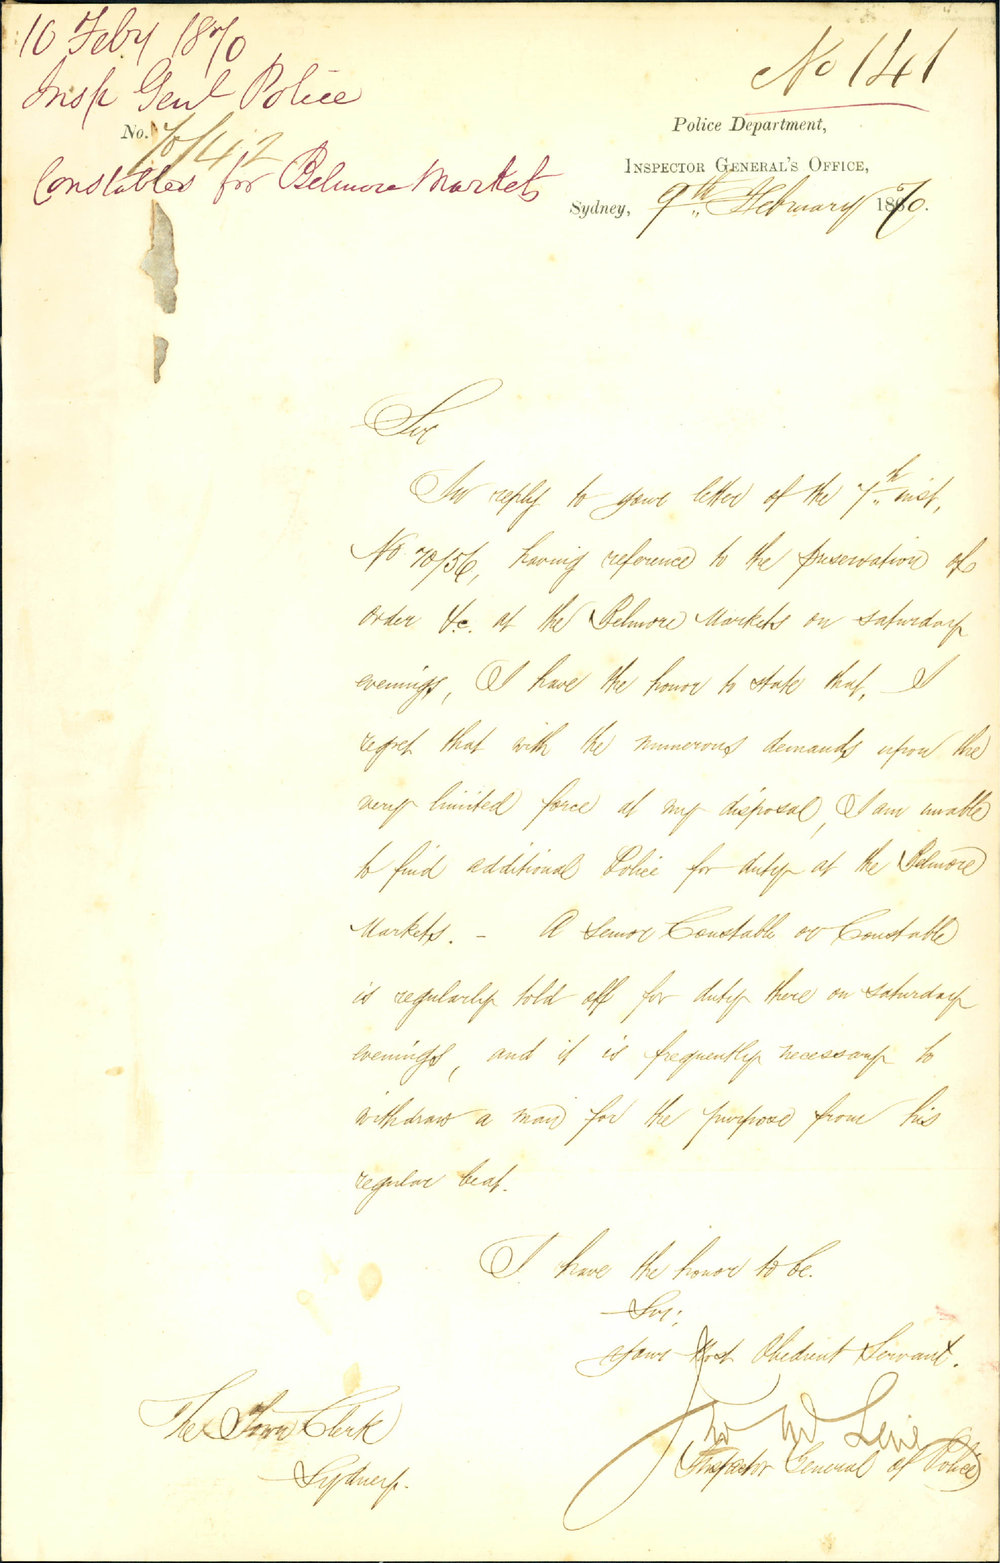 10 Feby 1870
No 141
Insp Genl Police
Police Department,
No. 70/142
Inspector General's Office,
Constables for Belmore Markets
Sydney, 9th February 1870.
Sir
In reply to your letter of the 7th inst,
No. 70/56, having reference to the preservation of
order &c. at the Belmore Markets on Saturday
evenings, I have the honor to state that, I
regret that with the numerous demands upon the
very limited force at my disposal, I am unable
to find additional Police for duty at the Belmore
Markets. - A Senior Constable or Constable
is regularly told off for duty there on Saturday
evenings, and it is frequently necessary to
withdraw a man for the purpose from his
regular beat.
I have the honor to be.
Sir;
Your Most Obedient Servant.
Inspector General of Police
The Town Clerk
Sydney.